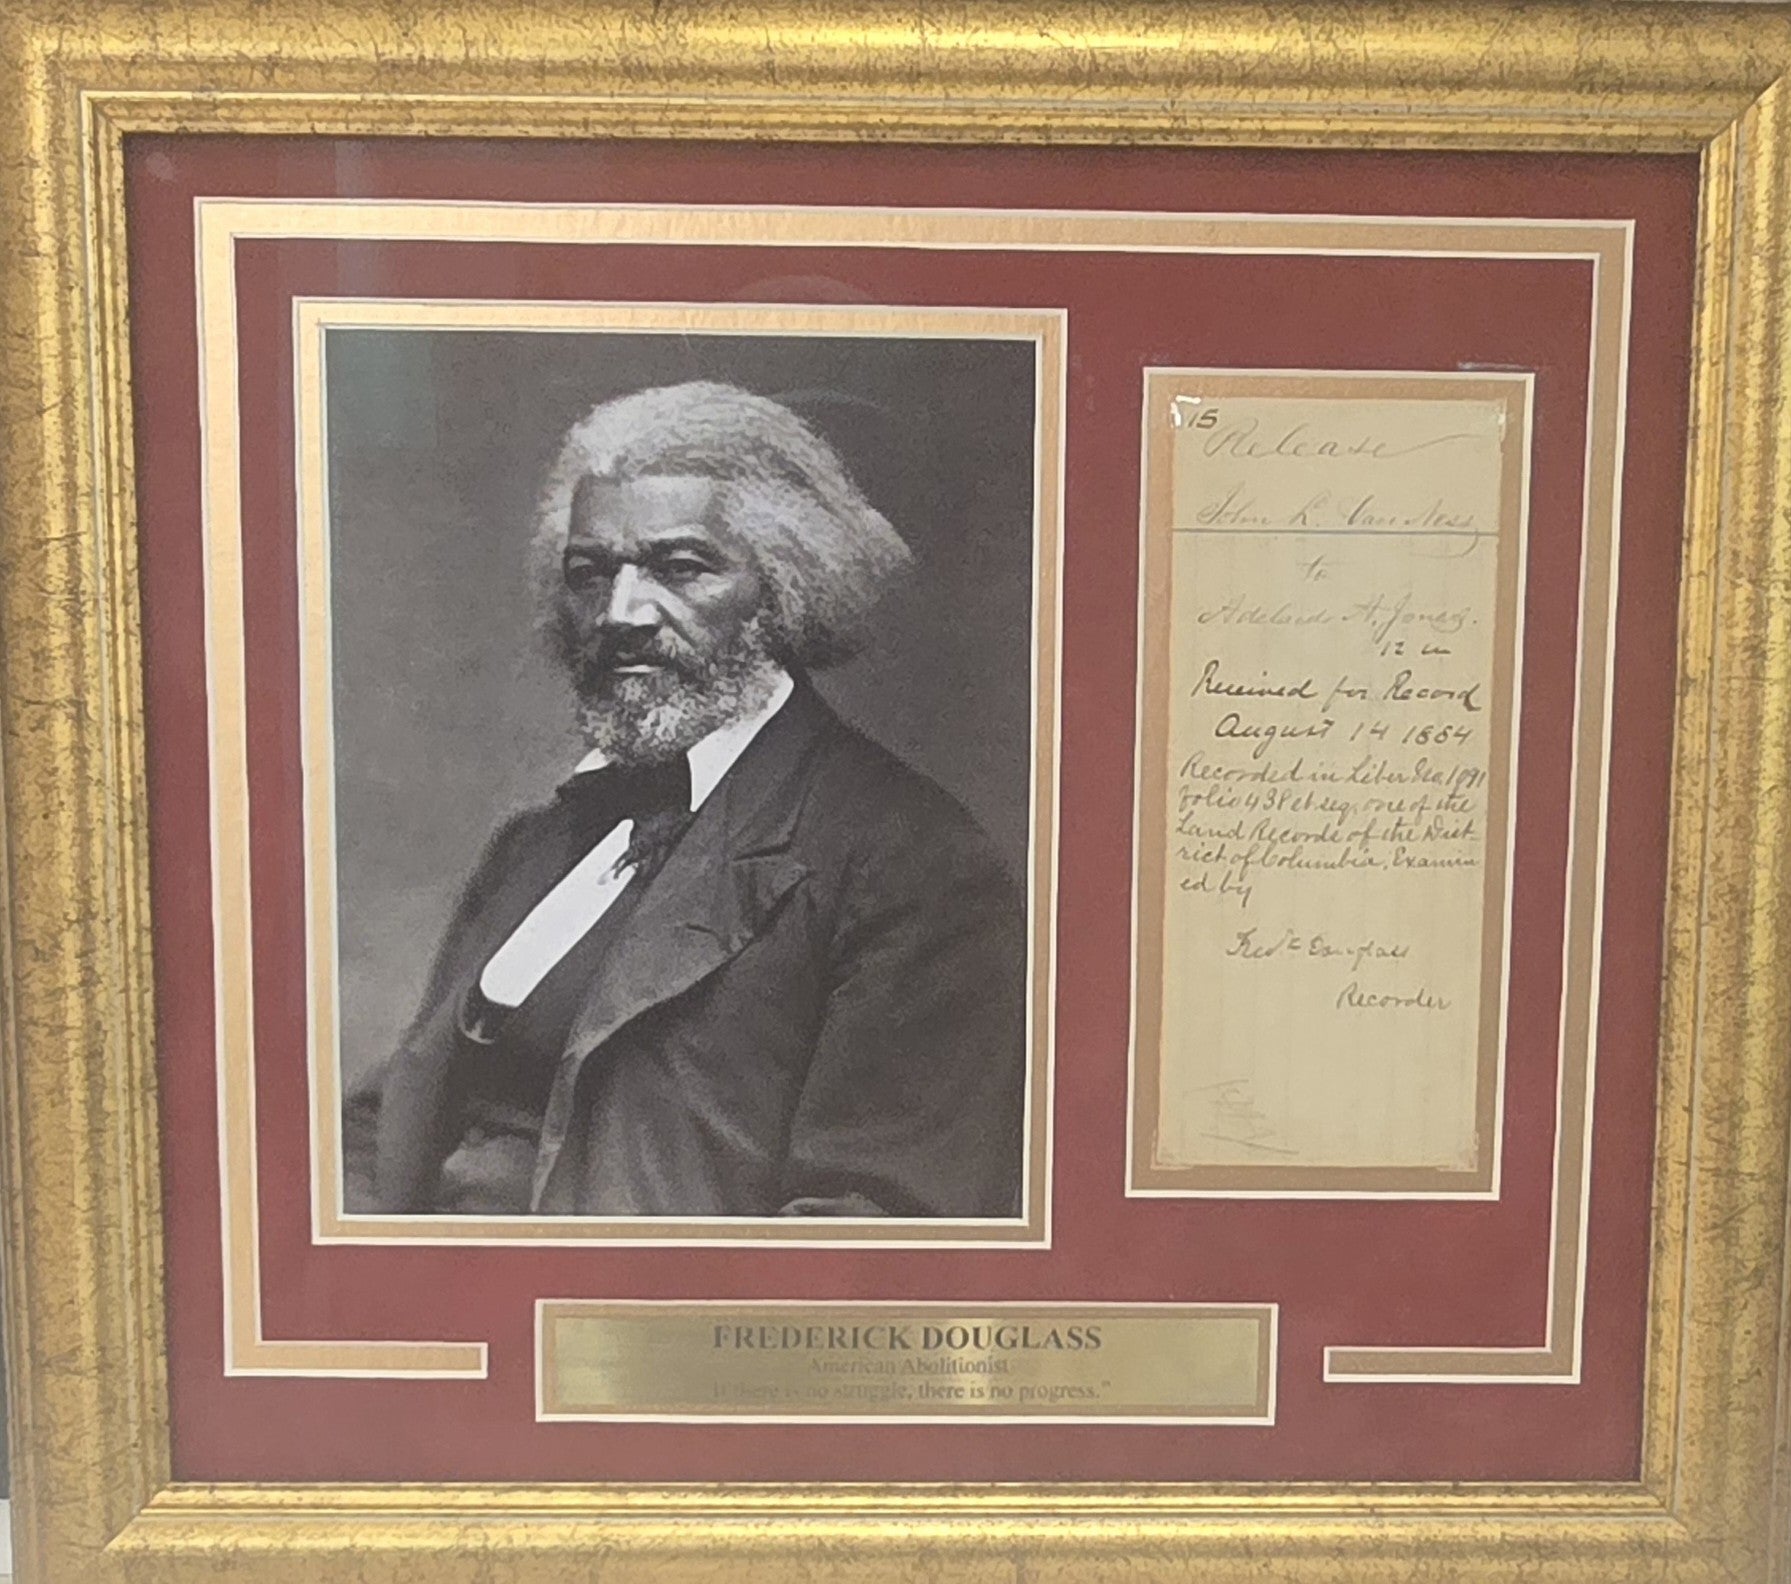 15
Release
John L. Van Ness
to
Adelaide H. Jones.
12 m
Received for Record
August 14 1884
Recorded in Liber No, 1091
folio 438 et seq, one of the
Land Records of the Dist-
rict of Columbia, Examin
ed by
Fredk Douglass
Recorder
FREDERICK DOUGLASS
American Abolitionist
"If there is no struggle, there is no progress."